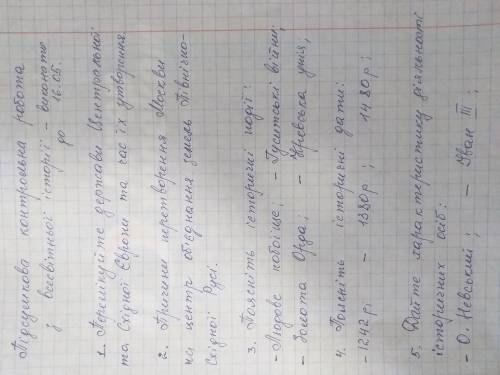 Підсумкова контрольна робота
з всесвітної історії – виконати
до 16.05.
1. Перелікуйте держави Центральної
та Східної Європи та час їх утворення.
2. Причини перетворення Москви
на центр об'єднання земель Північно-
Східної Русі.
3. Поясніть історичні події:
- Льодове побоїще; - Гуситські війни;
- Золота Орда; - Кревська унія,
4. Поясніть історичні дати:
- 1242 р; - 1380 р; 1480 р;
5. Дайте характеристику діяльності
історичних осіб:
- О. Невський; - Іван III;